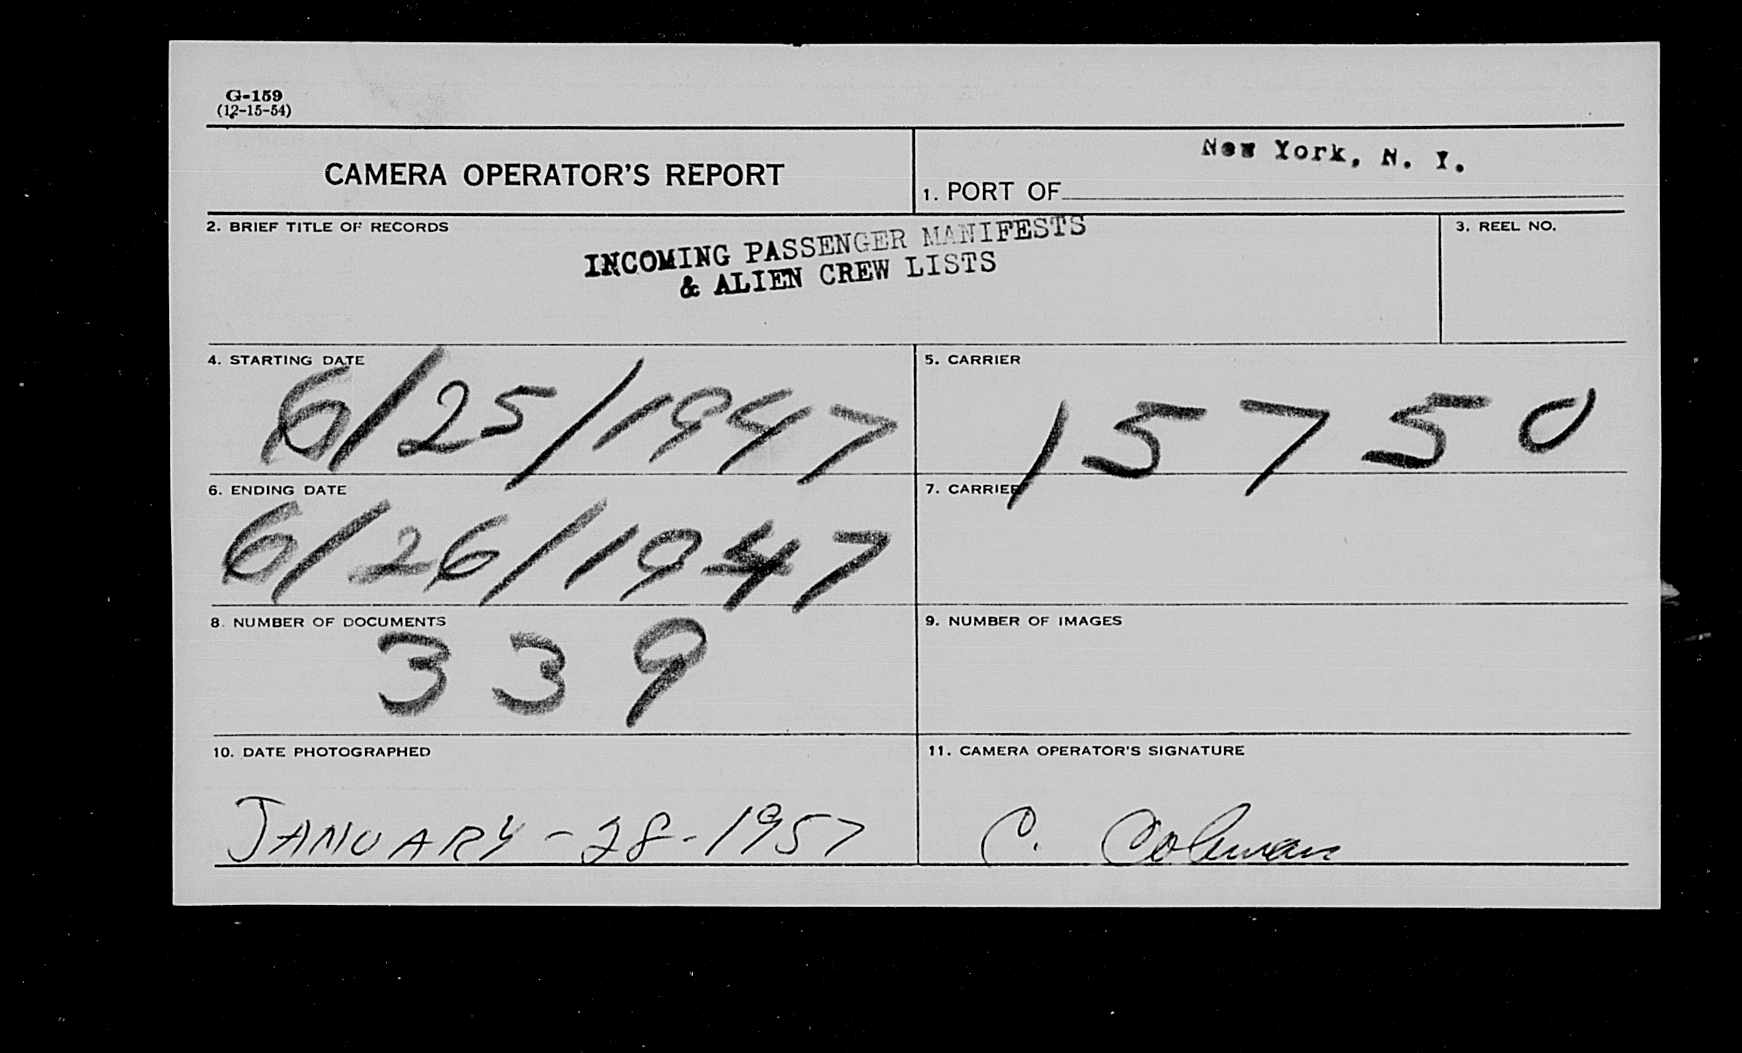 G-159
(12-15-54)
CAMERA OPERATOR'S REPORT
1. PORT OF New York, N. Y.
2. BRIEF TITLE OF RECORDS
INCOMING PASSENGER MANIFESTS
& ALIEN CREW LISTS
3. REEL NO.
4. STARTING DATE
6/25/1947
5. CARRIER
15750
6. ENDING DATE
6/26/1947
7. CARRIER
8. NUMBER OF DOCUMENTS
339
9. NUMBER OF IMAGES
10. DATE PHOTOGRAPHED
JANUARY-28-1957
11. CAMERA OPERATOR'S SIGNATURE
C. Colman